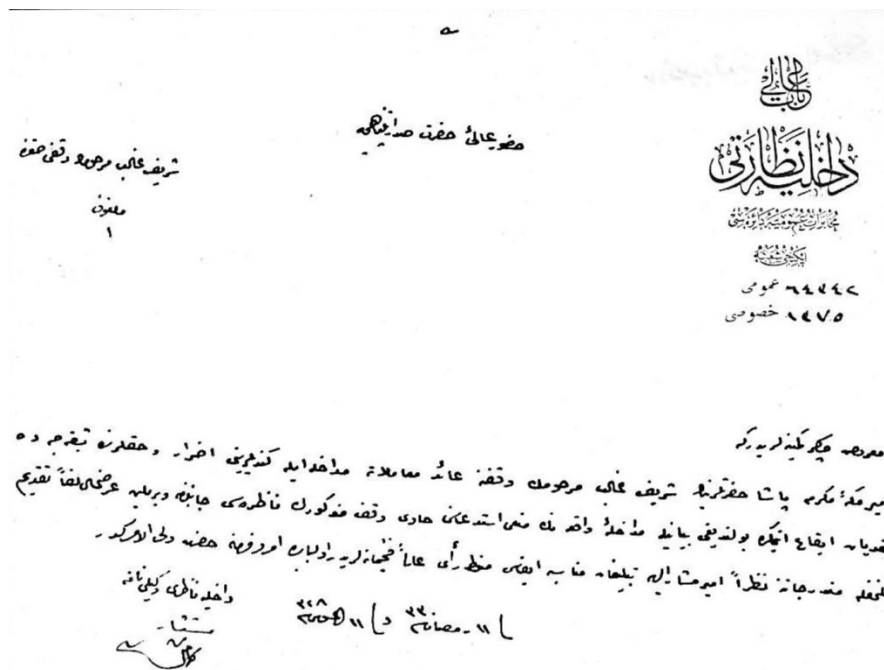 باب عالی
داخلیه نظارتی
مخابرات عمومیه دائره‌سی
ایکنجی شعبه
عمومی ٦٤٣٤٢
خصوصی
حضور عالئ حضرت صدارتپناهی‌یه
شریف غالب مرحومك وقفی حقنده
ملفوف
١
معروض چاكر كمینه‌لریدركه
مكرمه پاشا حضرتلرینك شریف غالب مرحومك وقفنه عائد معاملاته مداخله ایله كندیلرینی اضرار و حقلرنده
ایقاع ایتمكده بولندیغی بیانیله مداخلهٔ واقعه‌نك منعی استدعاسنی حاوی وقف مذكورك ناظره‌سی جانبندن ویریلن عرضحال لفاً تقدیم
مندرجاتنه نظراً امیر مشار الیهه تبلیغات مناسبه ایفاسی منوط رأی عالئ فخیمانه‌لریدر اولبابده امر و فرمان حضرت ولی الامركدر
داخلیه ناظری وكیلی نامنه
مستشار